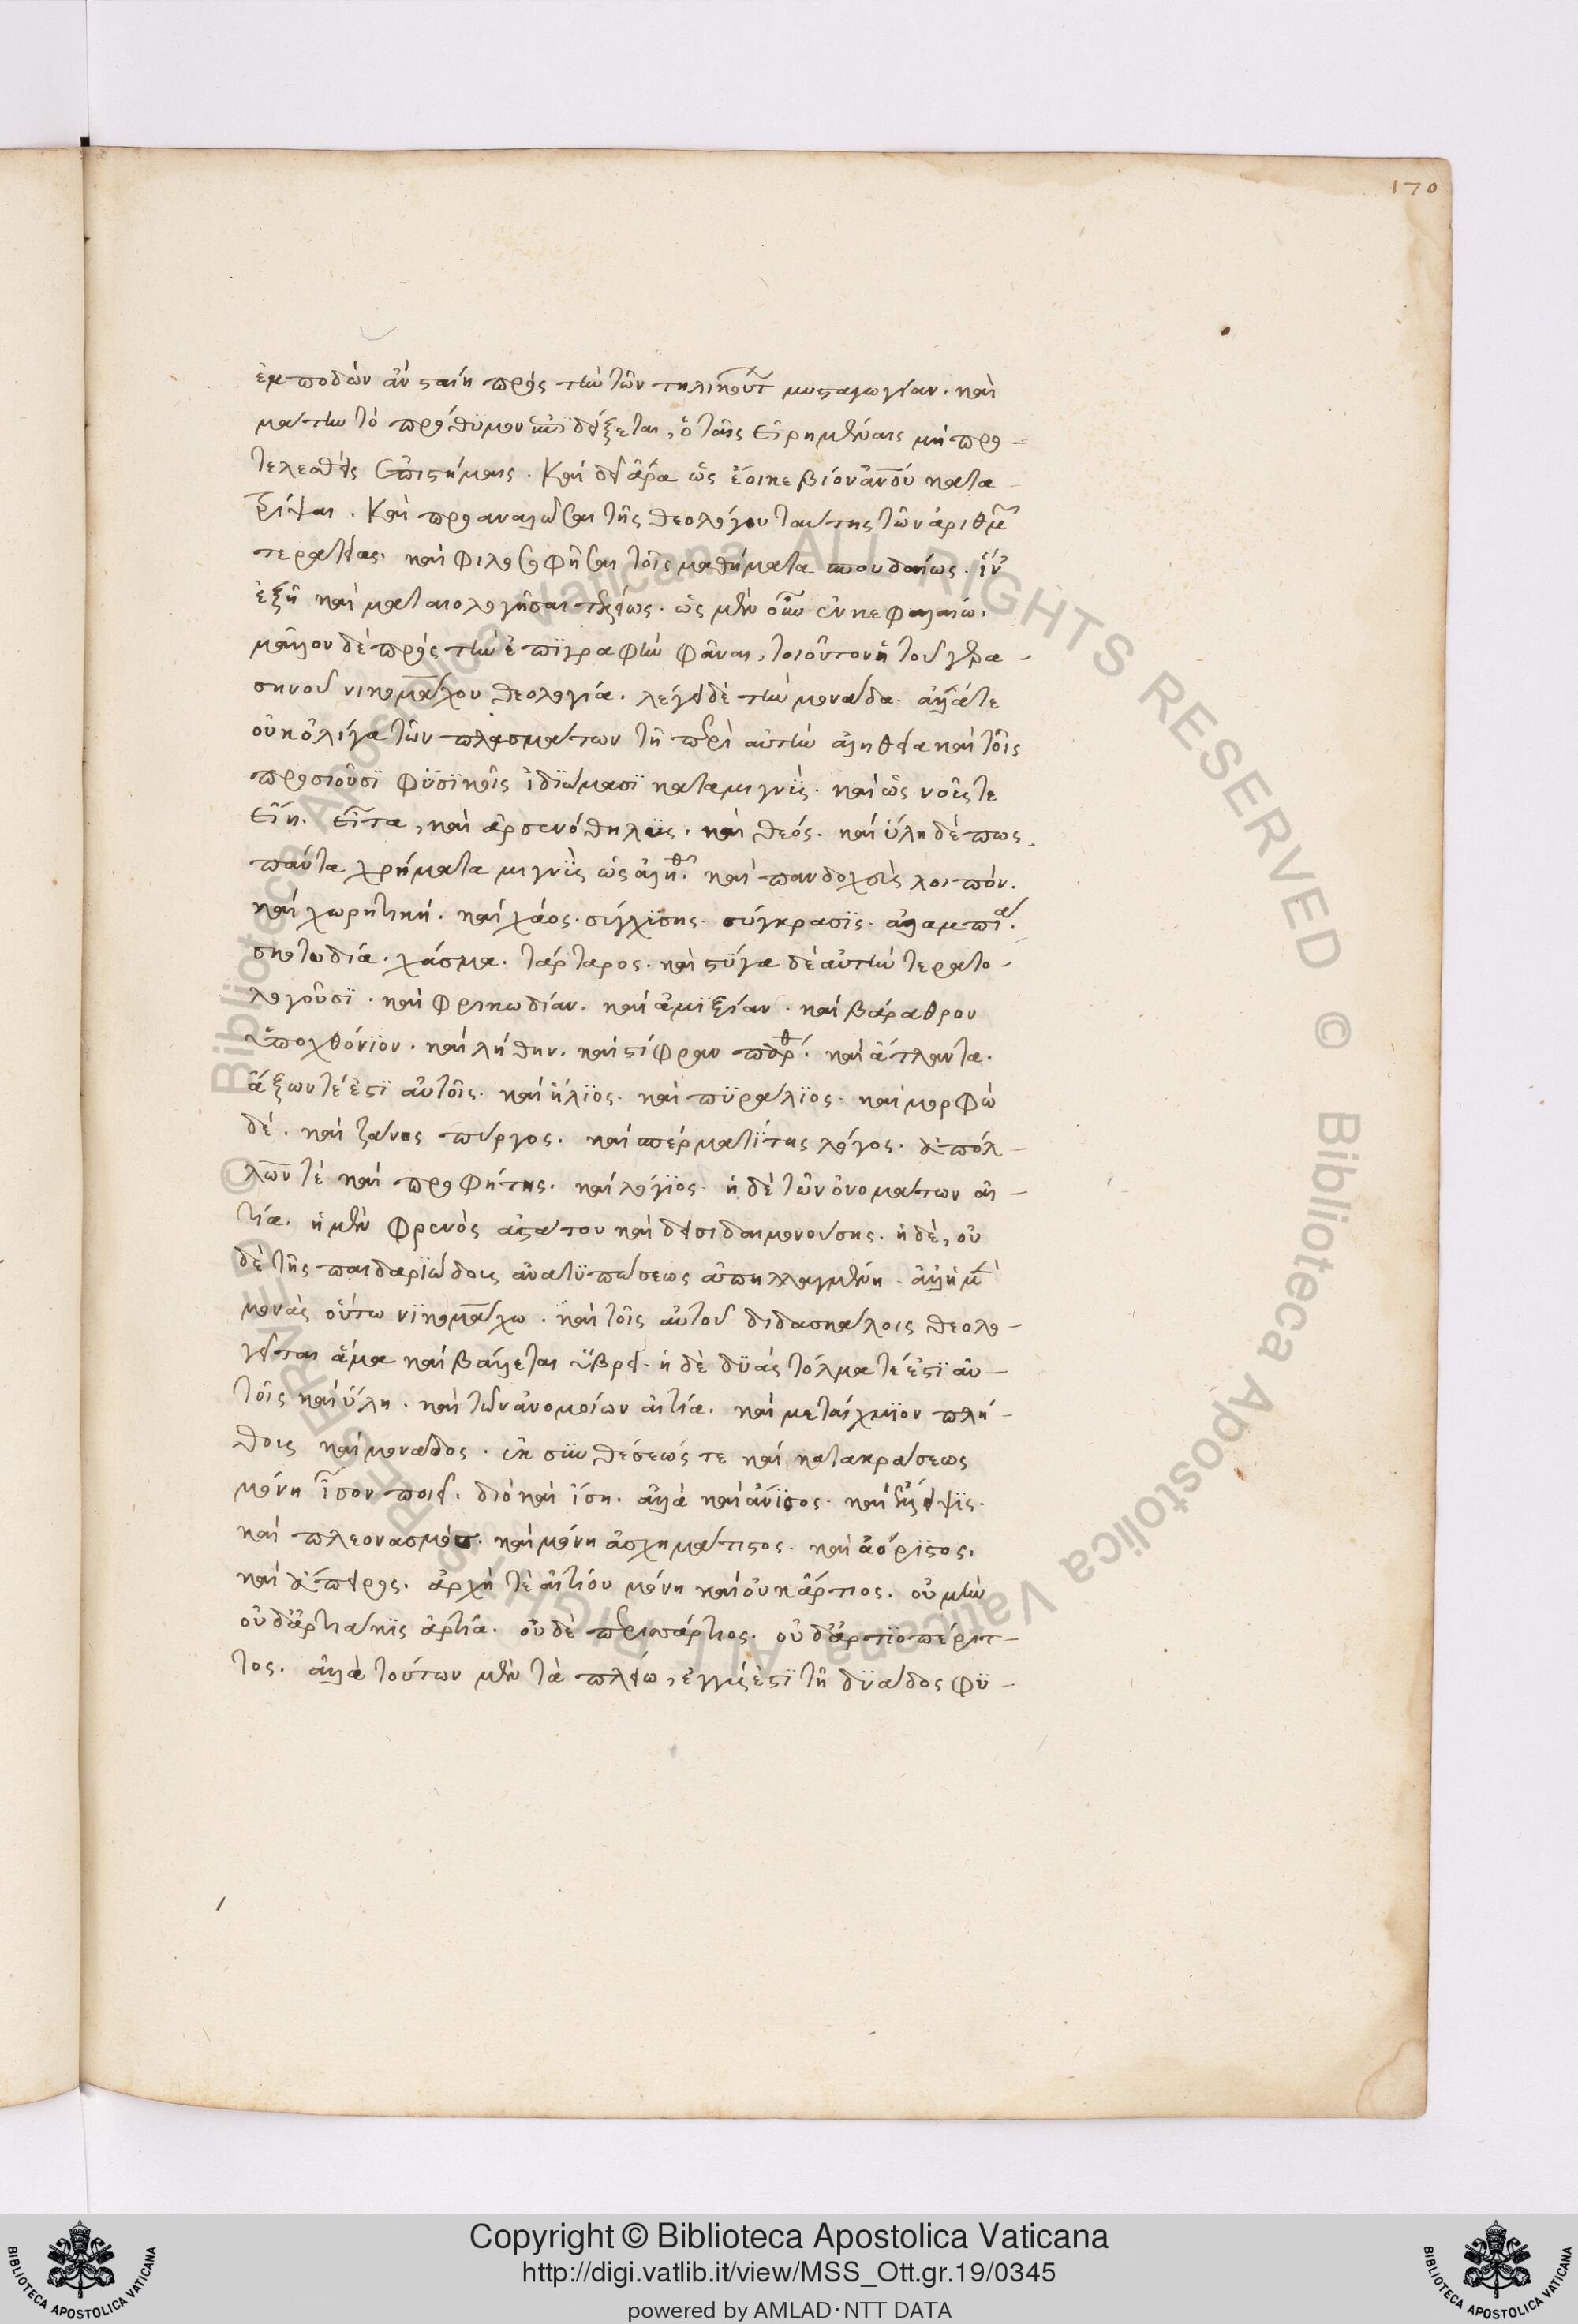 170
ἐμποδὼν ἂν σταίη πρὸς τὴν τῶν τηλικούτ μυσταγωγίαν. καὶ
μάτην τὸ πρόθυμον ἐπιδείξεται, ὁ ταῖς εἰρημέναις μὴ προ-
τελεσθεὶς ἐπιστήμαις. Καὶ δεῖ ἄρα ὡς ἔοικε βίον ἀνδρὸς κατα-
τρίψαι. Καὶ προαναλῶσαι τῆς θεολόγου ταύτης τῶν ἀριθμ
τερατείας. καὶ φιλοσοφῆσαι τοῖς μαθήμασι σπουδαίως. ἵν
ἐξῇ καὶ ματαιολογῆσαι τελέως. ὡς μὲν οὖν ἐν κεφαλαίω.
μᾶλλον δὲ πρὸς τὴν ἐπιγραφὴν φάναι, τοιοῦτον ἡ τοῦ γερα-
σηνοῦ νικομάχου θεολογία. λέγει δὲ τὴν μονάδα. ἀλλά τε
οὐκ ὀλίγα τῶν πλασμάτων τῇ περὶ αὐτὴν ἀληθεία καὶ τοῖς
προσιοῦσι φυσικοῖς ἰδιώμασι καταμιγνύς. καὶ ὡς νοῦς τε
εἴη. εἶτα, καὶ ἀρσενόθηλυς. καὶ θεός. καὶ ὕλη δέ πως.
πάντα χρήματα μιγνὺς ὡς ἀληθ. καὶ πανδοχεὺς λοιπόν.
καὶ χωρητική. καὶ χάος. σύγχυσις. σύγκρασις. ἀλαμπία.
σκοτωδία. χάσμα. τάρταρος. καὶ στύγα δὲ αὐτὴν τερατο-
λογοῦσι. καὶ φρικωδίαν. καὶ ἀμιξίαν. καὶ βάραθρον
ὑποχθόνιον. καὶ λήθην. καὶ στίφραν παρθ. καὶ ἄτλαντα.
ἄξων τέ ἐστι αὐτοῖς. καὶ ἥλιος. καὶ πυράλιος. καὶ μορφὼ
δέ. καὶ ζανὸς πύργος. καὶ σπερματίτης λόγος. ἀπόλ-
λων τὲ καὶ προφήτης. καὶ λόγιος. ἡ δὲ τῶν ὀνομάτων αἰ-
τία. ἡ μὲν φρενὸς ἀστάτου καὶ δεισιδαιμονούσης. ἡ δὲ, οὐ
δὲ τῆς παιδαριώδους ἀνατυπώσεως ἀπηλλαγμένη. ἀλλ ἡ μ
μονὰς οὕτω νικομάχω. καὶ τοῖς αὐτοῦ διδασκάλοις θεολο-
γεῖται ἅμα καὶ βάλλεται ὕβρει. ἡ δὲ δυὰς τόλμα τέ ἐστι αὐ-
τοῖς καὶ ὕλη. καὶ τῶν ἀνομοίων αἰτία. καὶ μεταίχμιον πλή-
θους καὶ μονάδος. ἐκ συνθέσεώς τε καὶ κατακράσεως
μόνη ἴσον ποιεῖ. διὸ καὶ ἴση. ἀλλὰ καὶ ἄνισος. καὶ ἔλλειψις.
καὶ πλεονασμός. καὶ μόνη ἀσχημάτιστος. καὶ ἀόριστος.
καὶ ἄπειρος. ἀρχή τε αἰτίου μόνη καὶ οὐκ ἄρτιος. οὐ μὴν
οὐδ ἀρτιάκις ἀρτία. οὐδὲ περισσάρτιος. οὐδ ἀρτιοπέριτ-
τος. ἀλλὰ τούτων μὲν τὰ πλείω, ἐγγύς ἐστι τῇ δυάδος φύ-
Copyright © Biblioteca Apostolica Vaticana
http://digi.vatlib.it/view/MSS_Ott.gr.19/0345
powered by AMLAD·NTT DATA